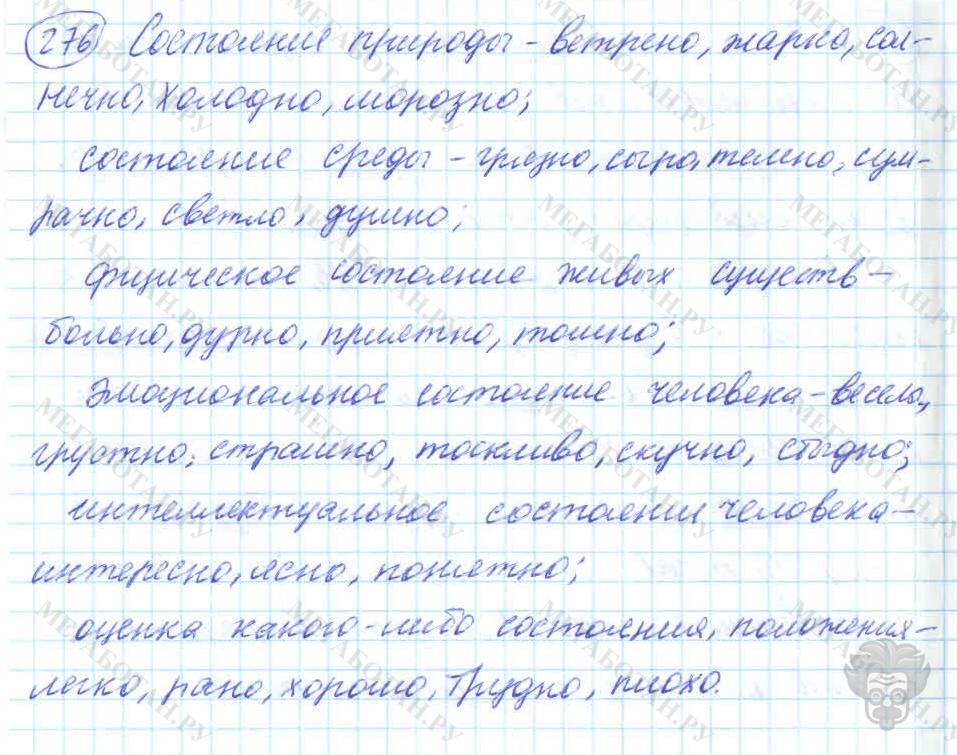 276 Состояние природы - ветрено, жарко, сол-
нечно, холодно, морозно;
состояние среды - грязно, сыро, темно, сум-
рачно, светло, душно;
физическое состояние живых существ -
больно, дурно, приятно, тошно;
эмоциональное состояние человека - весело,
грустно, страшно, тоскливо, скучно, стыдно;
интеллектуальное состояние человека -
интересно, ясно, понятно;
оценка какого-либо состояния, положения -
легко, рано, хорошо, трудно, плохо.
МЕГАБОТАН.РУ